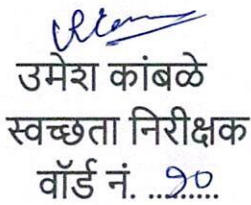 उमेश कांबळे
स्वच्छता निरीक्षक
वॉर्ड नं. ...१०......